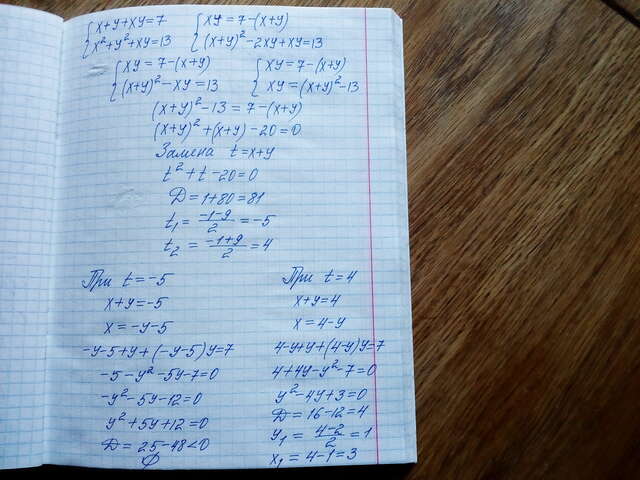 {x+y+xy=7 {xy=7-(x+y)
{x²+y²+xy=13 {(x+y)²-2xy+xy=13
{xy=7-(x+y) {xy=7-(x+y)
{(x+y)²-xy=13 {xy=(x+y)²-13
(x+y)²-13=7-(x+y)
(x+y)²+(x+y)-20=0
Замена t=x+y
t²+t-20=0
D=1+80=81
t₁=(-1-9)/2=-5
t₂=(-1+9)/2=4
При t=-5
x+y=-5
x=-y-5
-y-5+y+(-y-5)y=7
-5-y²-5y-7=0
-y²-5y-12=0
y²+5y+12=0
D=25-48<0
∅
При t=4
x+y=4
x=4-y
4-y+y+(4-y)y=7
4+4y-y²-7=0
y²-4y+3=0
D=16-12=4
y₁=(4-2)/2=1
x₁=4-1=3